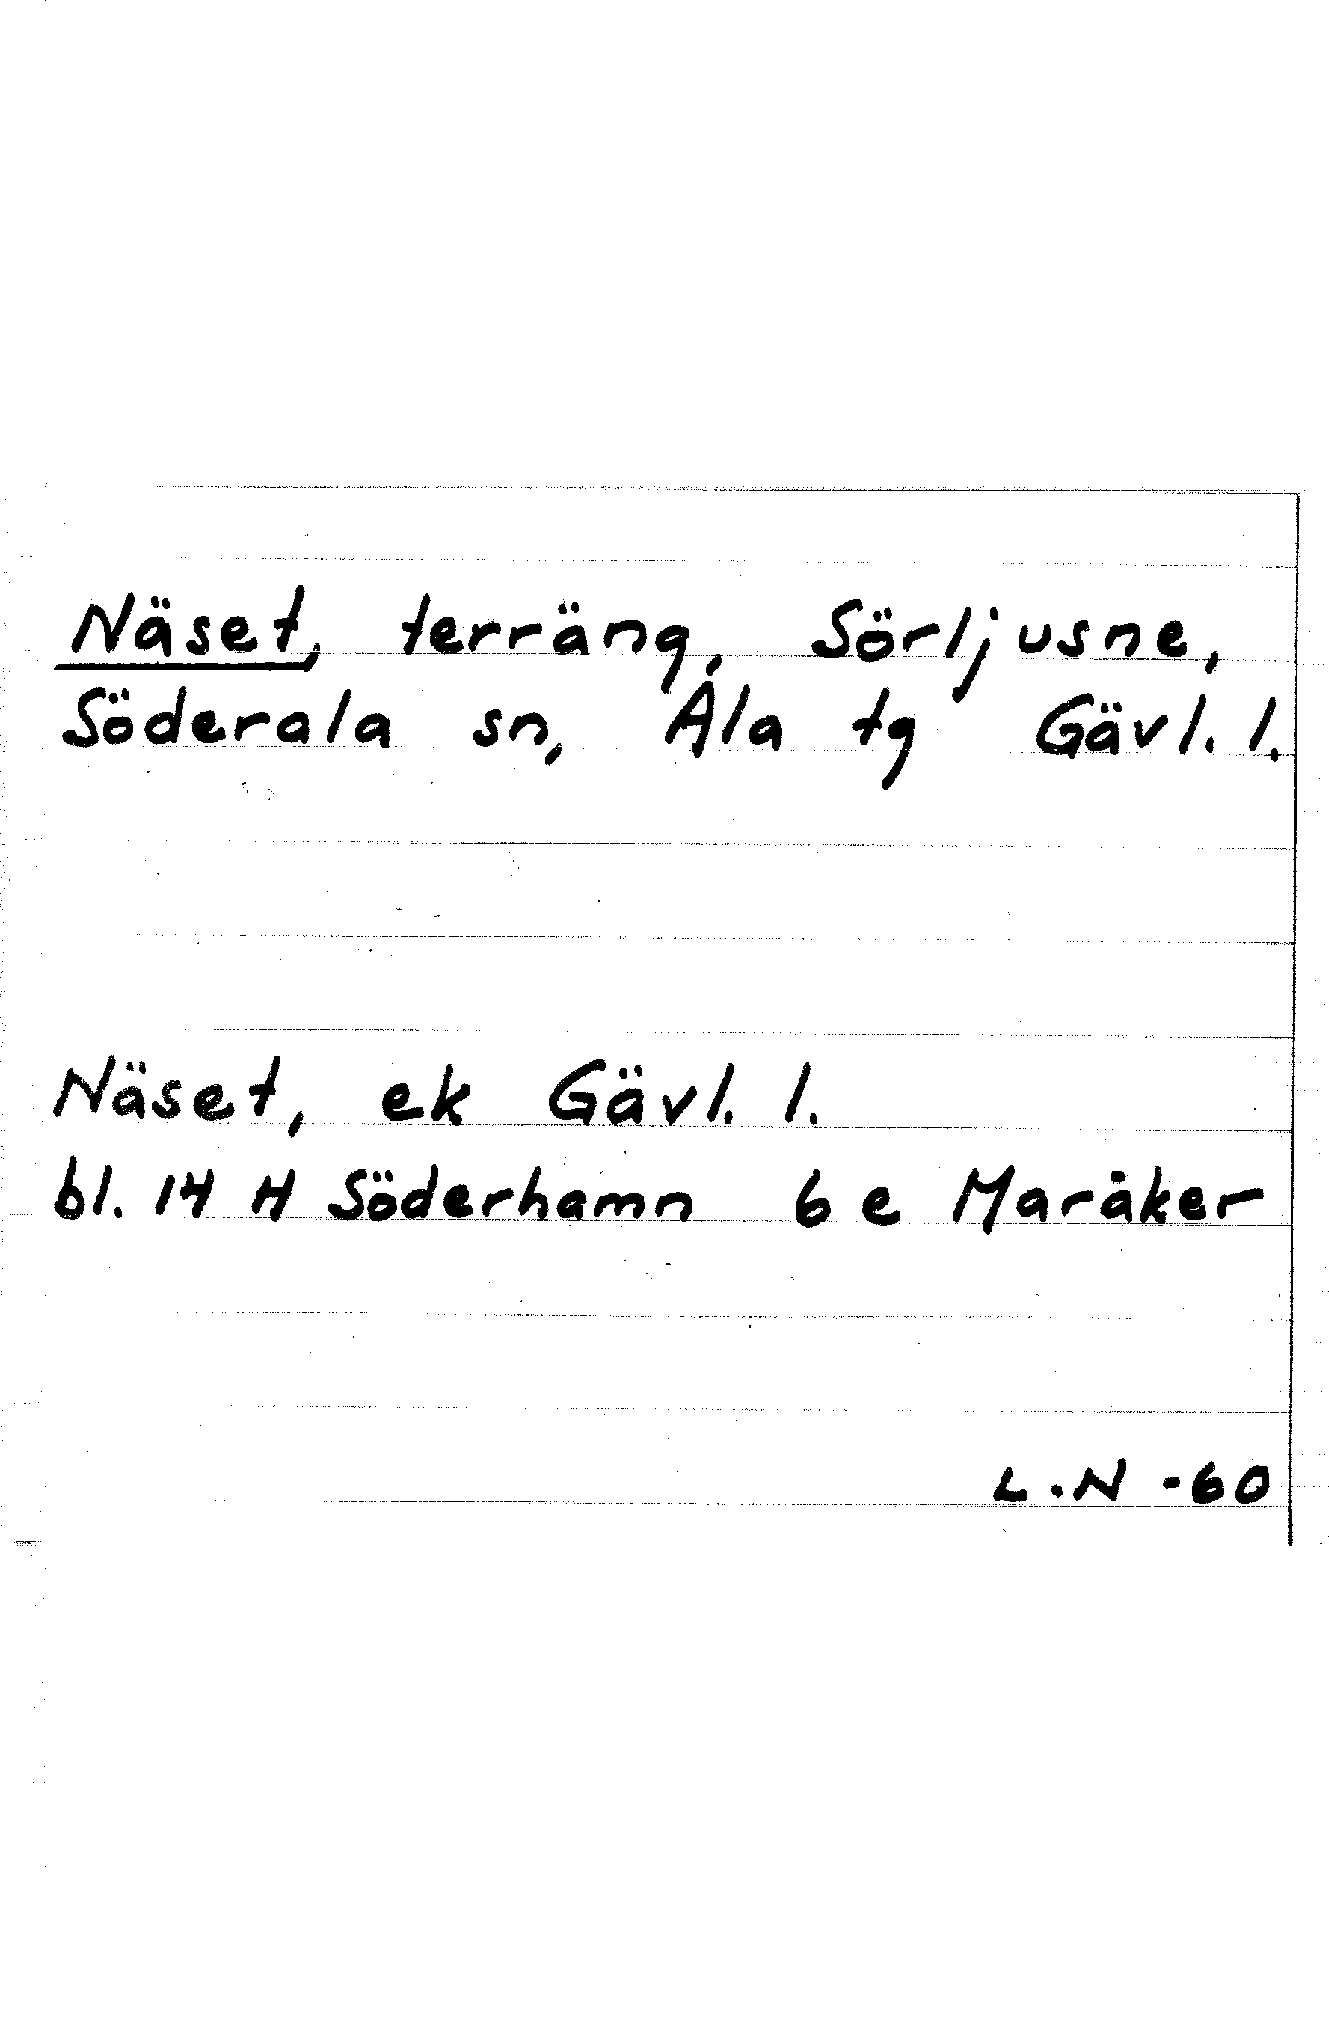 Näset, terräng, Sörljusne,
Söderala sn, Ala tg Gävl. l.
Näset, ek Gävl. l.
bl. 14 H Söderhamn 6 e Maråker
L.N -60